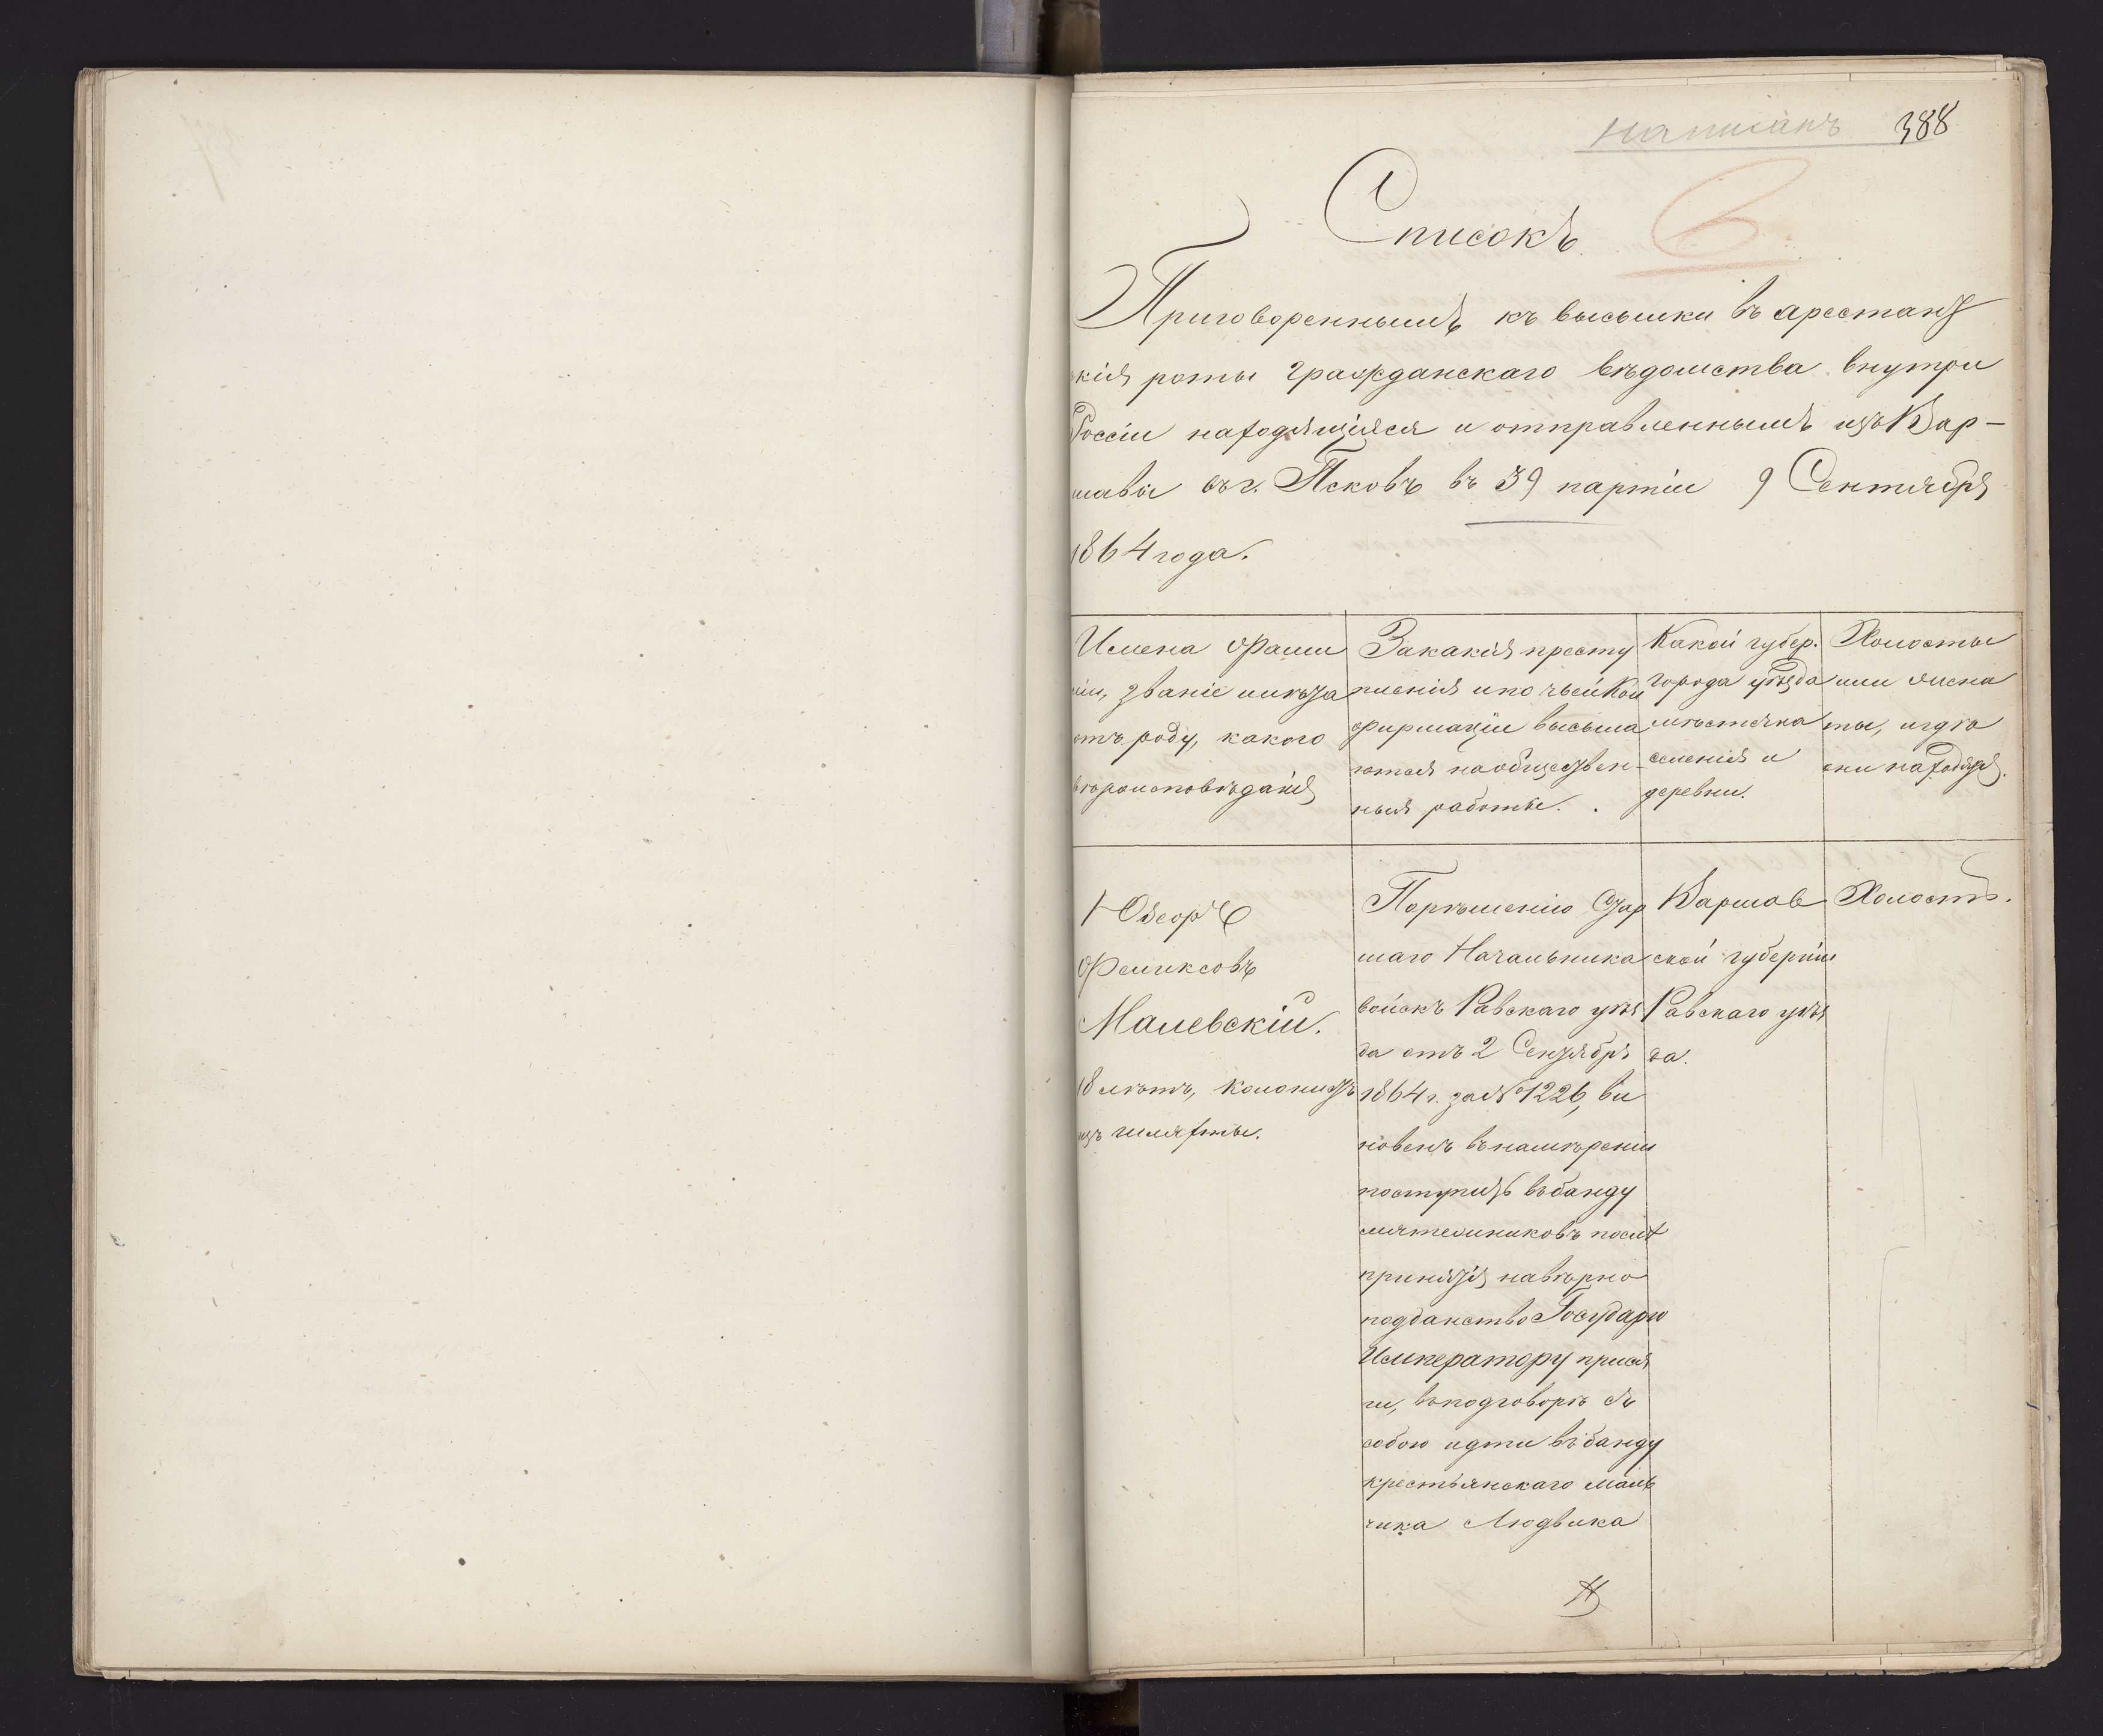 написанъ 388
Списокъ
Приговореннымъ къ высылки въ арестант
скія роты гражданскаго вѣдомства внутри
Россіи находящіяся и отправленнымъ изъ Вар-
шавы въ г. Псковъ въ 39 партіи 9 Сентября
1864 года.
Имена Фами
ліи, званіе и лѣта
отъ роду, какого
вѣроисповѣданія
За какія престу
пленія и по чьей Кон
фирмаціи высыла
ются на обществен-
ныя работы.
Какой губер.
города уѣзда
мѣстечка
селенія и
деревни.
Холосты
или жена
ты, и гдѣ
они находятся.
Юзефъ
Феликсовъ
Малевскій.
18 лѣтъ, колонистъ
изъ шляхты.
По рѣшенію Стар
шаго Начальника
войскъ Равскаго уѣз
да отъ 2 Сентября
1864 г. за № 1226, ви
новенъ въ намѣреніи
поступить въ банду
мятежниковъ послѣ
принятія на вѣрно
подданство Государю
Императору прися
ги, въ подговорѣ съ
собою идти въ банду
крестьянскаго маль
чика Людвика
Варшав
ской губерніи
Равскаго уѣз
да.
Холостъ.